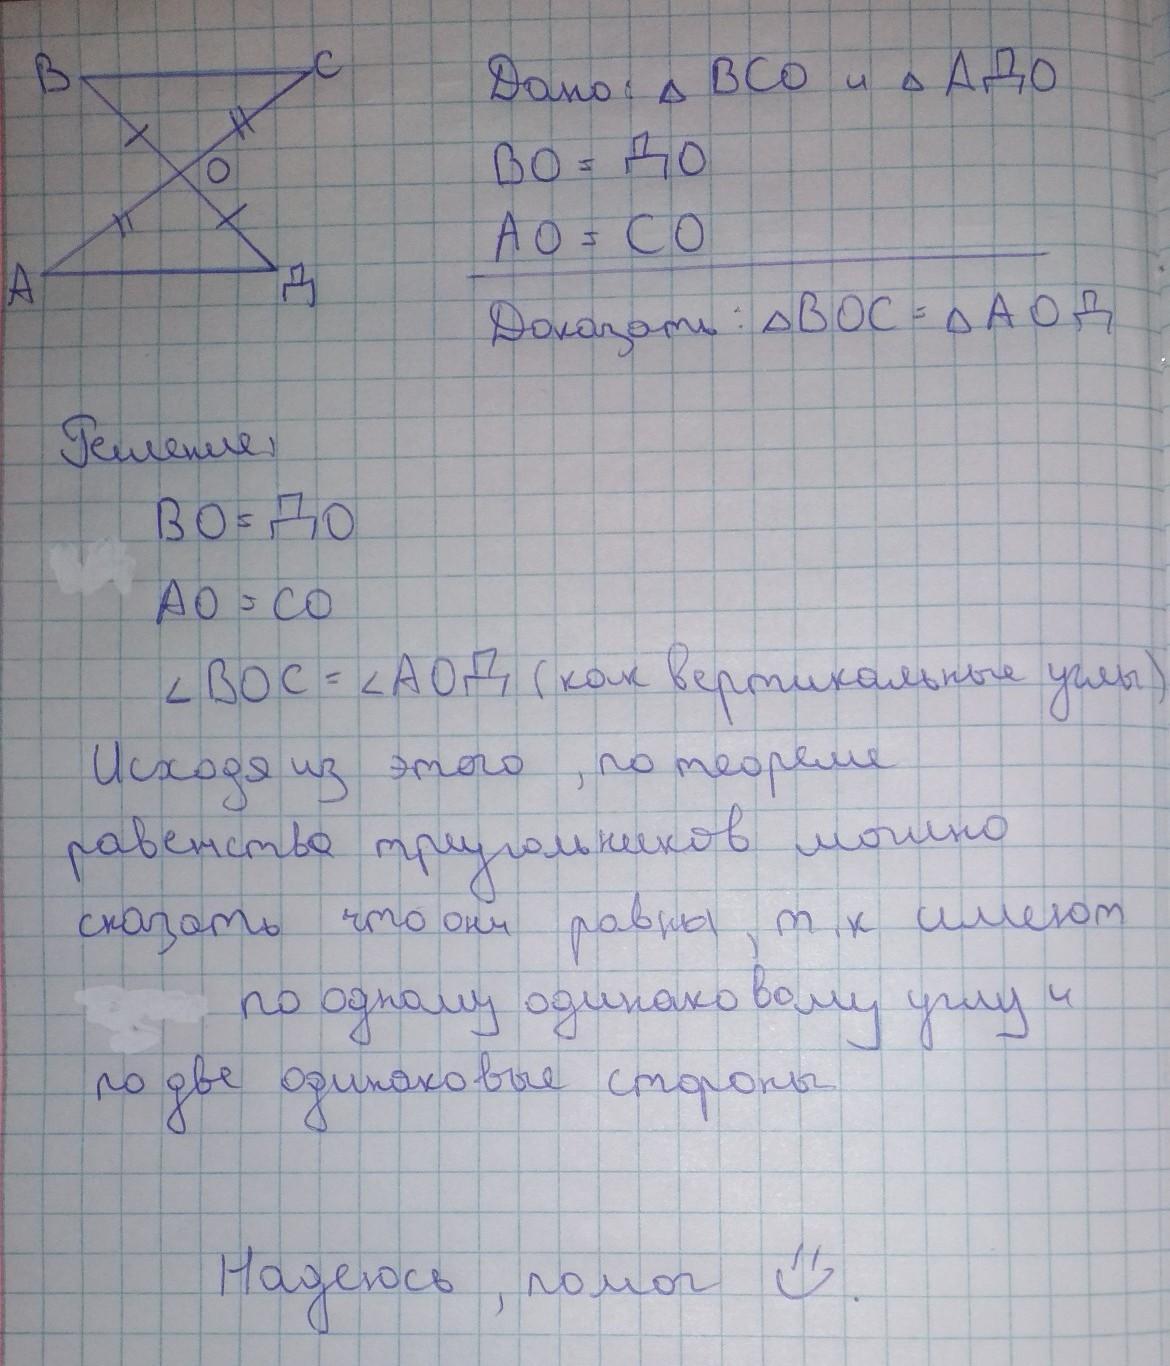 В
С
О
А
Д
Дано: △ ВСО и △ АДО
ВО = ДО
АО = СО
Доказать: △ВОС = △АОД
Решение:
ВО = ДО
АО = СО
∠ВОС = ∠АОД (как вертикальные углы)
Исходя из этого, по теореме
равенства треугольников можно
сказать что они равны, т.к имеют
по одному одинаковому углу и
по две одинаковые стороны
Надеюсь, помог .